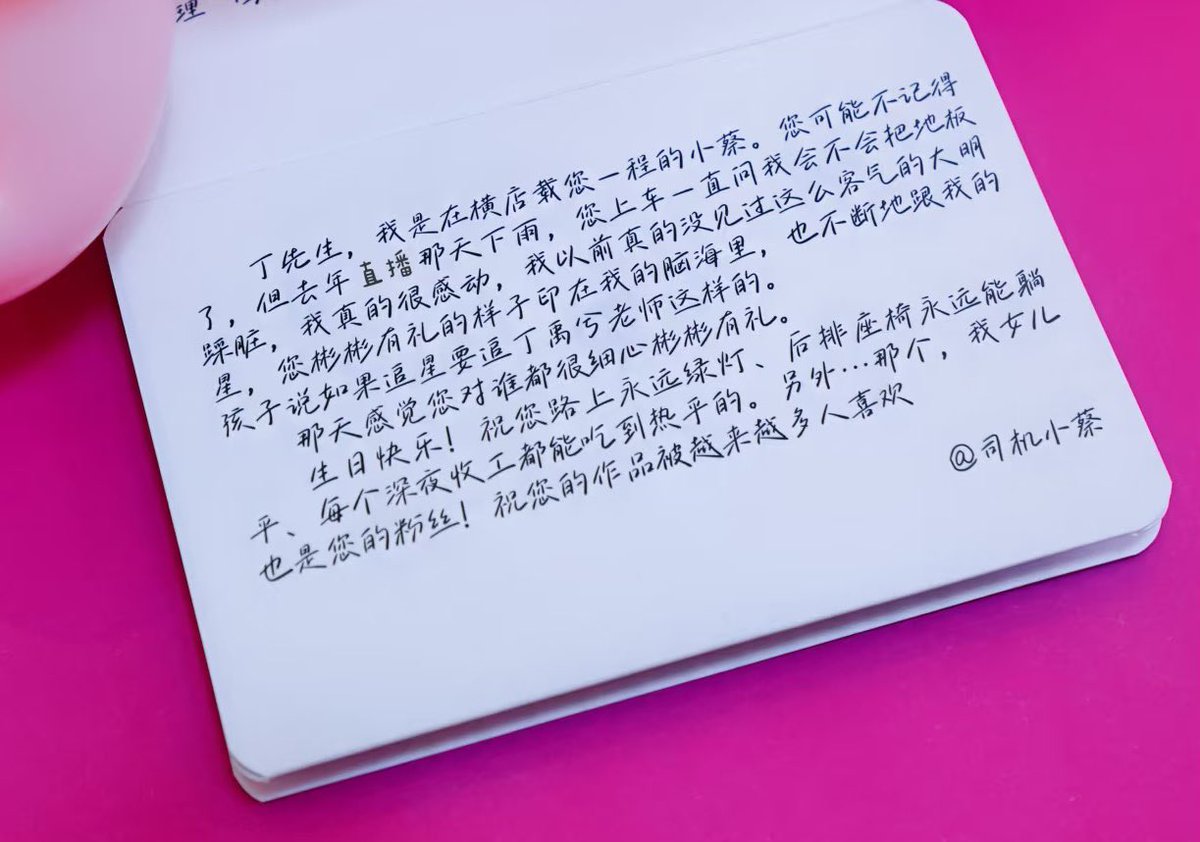 理
丁先生，我是在横店载您一程的小蔡。您可能不记得
了，但去年直播那天下雨，您上车一直问我会不会把地板
踩脏，我真的很感动，我以前真的没见过这么客气的大明
星，您彬彬有礼的样子印在我的脑海里，也不断地跟我的
孩子说如果追星要追丁禹兮老师这样的。
那天感觉您对谁都很细心彬彬有礼。
生日快乐！祝您路上永远绿灯、后排座椅永远能躺
平、每个深夜收工都能吃到热乎的。另外…那个，我女儿
也是您的粉丝！祝您的作品被越来越多人喜欢
@司机小蔡